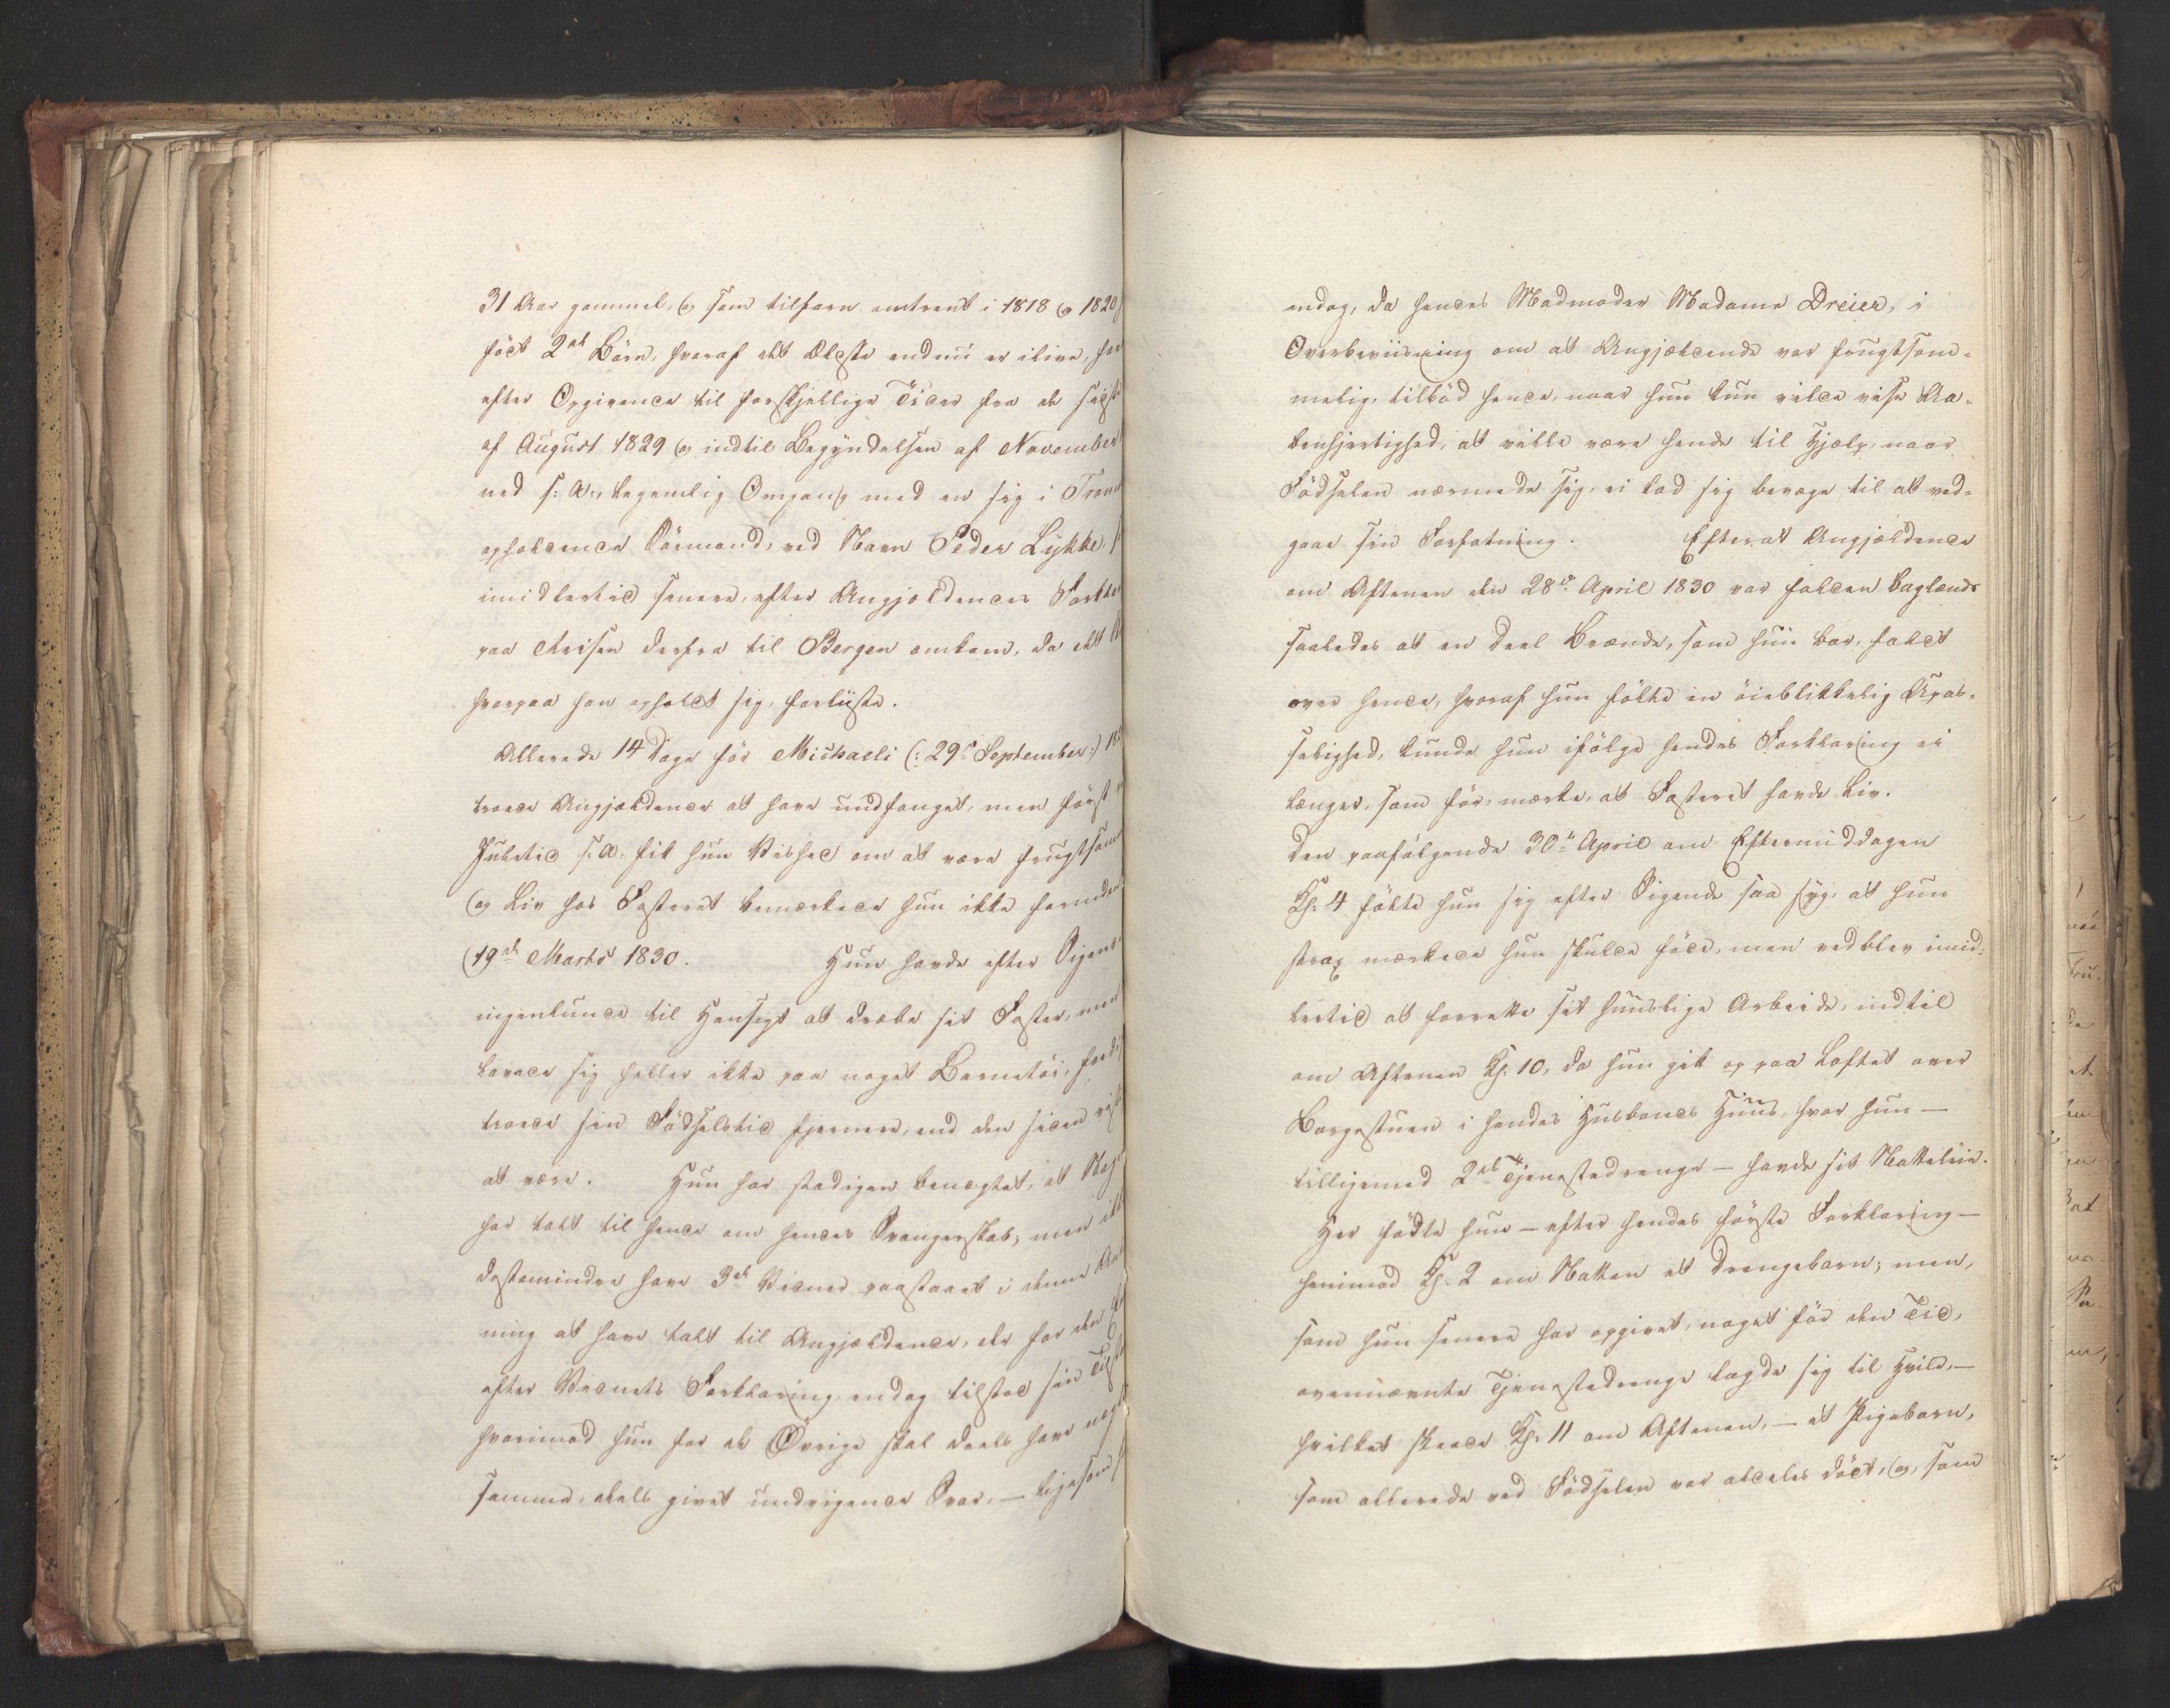 31 Aar gammel, og som tilforn omtrent i 1818 og 1820
föd 2de Börn, hvoraf det Ældste endnu er ilive, har
efter Opgivende til forskjellige Tider fra de sidste
af August 1829 og indtil Begyndelsen af November
ved s: A:, legemlig Omgang med en sig i Trond
opholdende Sömand, ved Navn Peder Lykke,
imidlertid senere, efter Angjeldendes Forkla
paa Reisen derfra til Bergen omkom, da det
hvorpaa han opholdt sig, forliiste.
Allerede 14 Dage för Michaeli (: 29de September:) 18
troede Angjældende at have undfanget, men först
Juletid s: A: fik hun Vished om at være frugtsom
og Liv hos Fosteret bemærkede hun ikke forinden
19de Marts 1830. Hun havde efter Sigende
ingenlunde til Hensigt at dræbe sit Foster, men
lavede sig heller ikke paa noget Barnetöi, fordi
troede sin Födselstid fjernere, end den siden
at være. Hun har stadigen benægtet, at Nogen
har talt til hende om hendes Svangerskab; men ikke
destomindre have 3de Vidner paastaaet i denne An
ning at have talt til Angjældende, der for den
efter Vidnets Forklaring endog tilstod sin
hvorimod hun for de Övrige skal deels have nægtet
samme, deels givet undvigende Svar, — ligesom
endog, da hendes Madmoder Madame Dreier, i
Overbeviisning om at Angjældende var frugtsom-
melig, tilböd hende, naar hun kun vilde vise Aa-
benhjertighed, at ville være hende til Hjælp, naar
Födselen nærmede sig, ei lod sig bevæge til at ved-
gaae sin Forfatning. Efterat Angjældende
om Aftenen den 28de April 1830 var falden baglænds
saaledes at en Deel Brænde, som hun bar, faldt
over hende, hvoraf hun fölte en öieblikkelig Upas-
selighed, kunde hun ifölge hendes Forklaring ei
længer, som för, mærke, at Fosteret havde Liv.
Den paafölgende 30te April om Eftermiddagen
Kl. 4 fölte hun sig efter Sigende saa syg, at hun
strax mærkede hun skulde föde, men vedblev imid-
lertid at forrette sit huuslige Arbeide, indtil
om Aftenen Kl. 10, da hun gik op paa Loftet over
Borgestuen i hendes Husbonds Huus, hvor hun —
tilligemed 2de Tjenestedrenge — havde sit Natteleie.
Her födte hun — efter hendes förste Forklaring —
henimod Kl. 2 om Natten et Drengebarn; men,
som hun senere har opgivet, noget för den Tid,
ovennævnte Tjenestedrenge lagde sig til Hvile, —
hvilket skeede Kl. 11 om Aftenen, — et Pigebarn,
som allerede ved Födselen var aldeles dödt, og, som